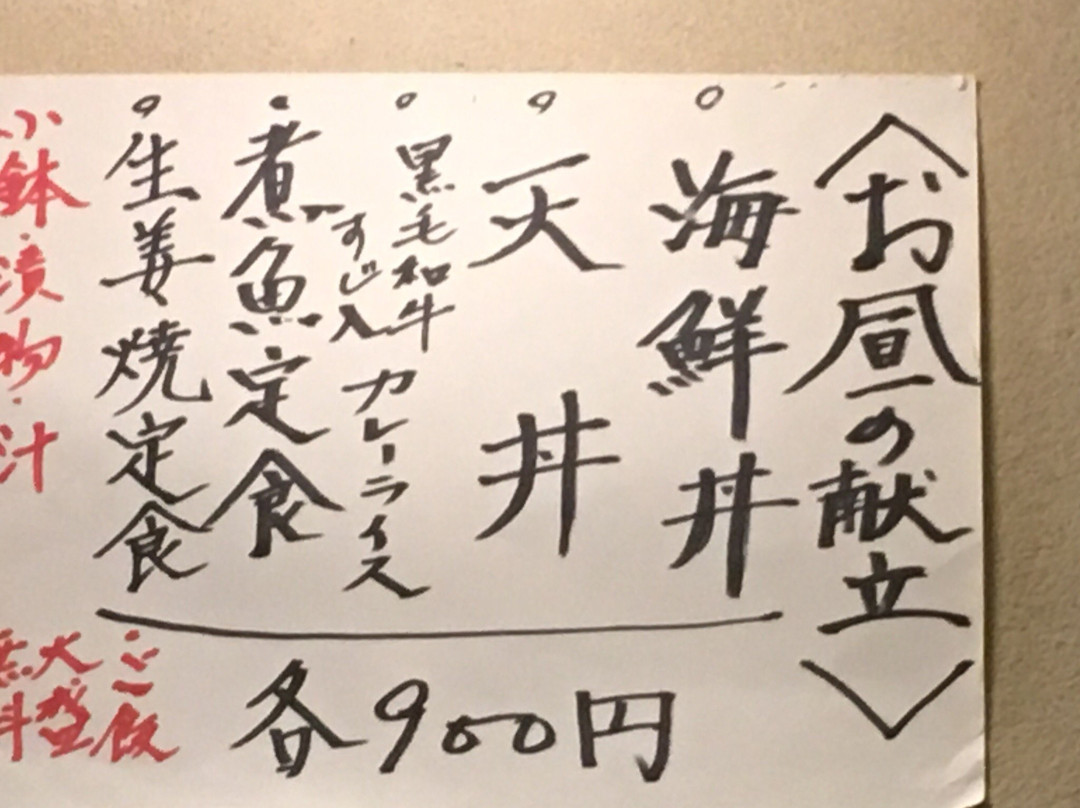 〈お昼の献立〉
○海鮮丼
○天丼
○黒毛和牛
すじ入
カレーライス
○煮魚定食
○生姜焼定食
各900円
小鉢・漬物・汁
ご飯
大盛
無料